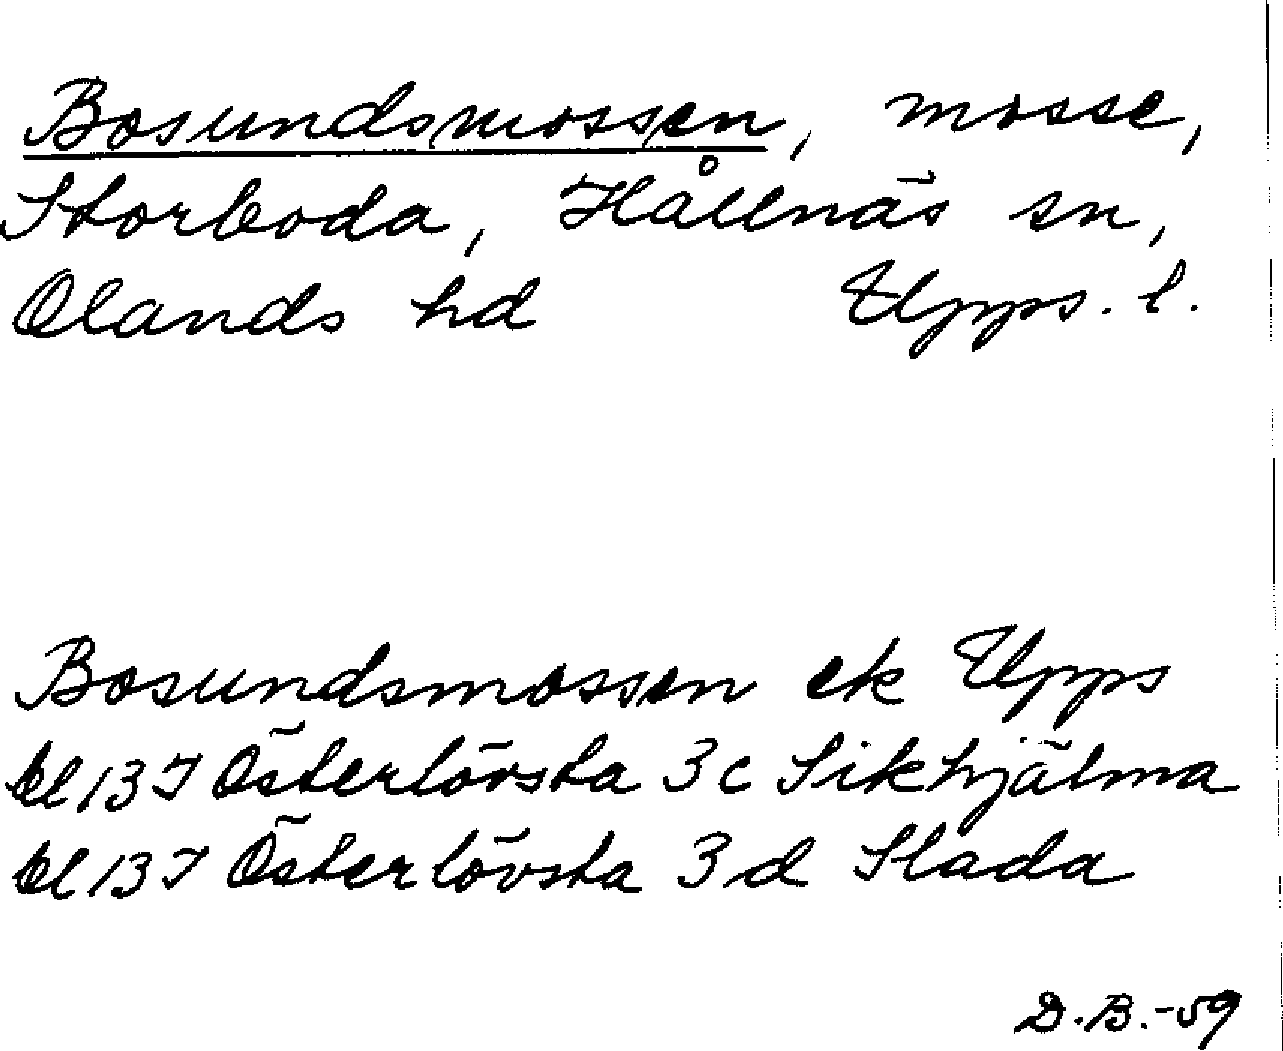 Bosundsmossen, mosse,
Storboda, Hållnäs sn,
Olands hd Upps. l.
Bosundsmossen ek Upps
bl 13 I Österlövsta 3c Sikhjälma
bl 13 I Österlövsta 3d Slada
D.B.-59